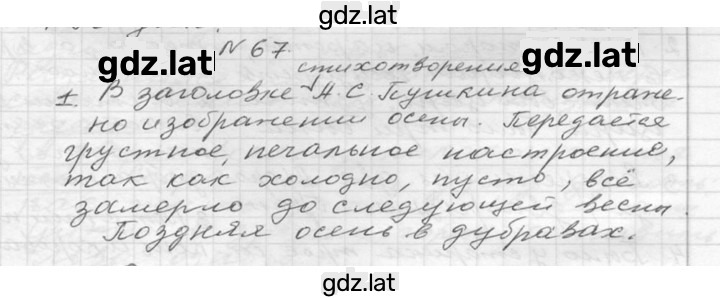 gdz.lat
№ 67
gdz.lat
gdz.lat
стихотворения
1. В заголовке А. С. Пушкина отраже-
но изображении осены. Передаётся
грустное, печальное настроение,
так как холодно, пусто, всё
замерло до следующей весны.
Поздняя осень в дубравах.
gdz.lat